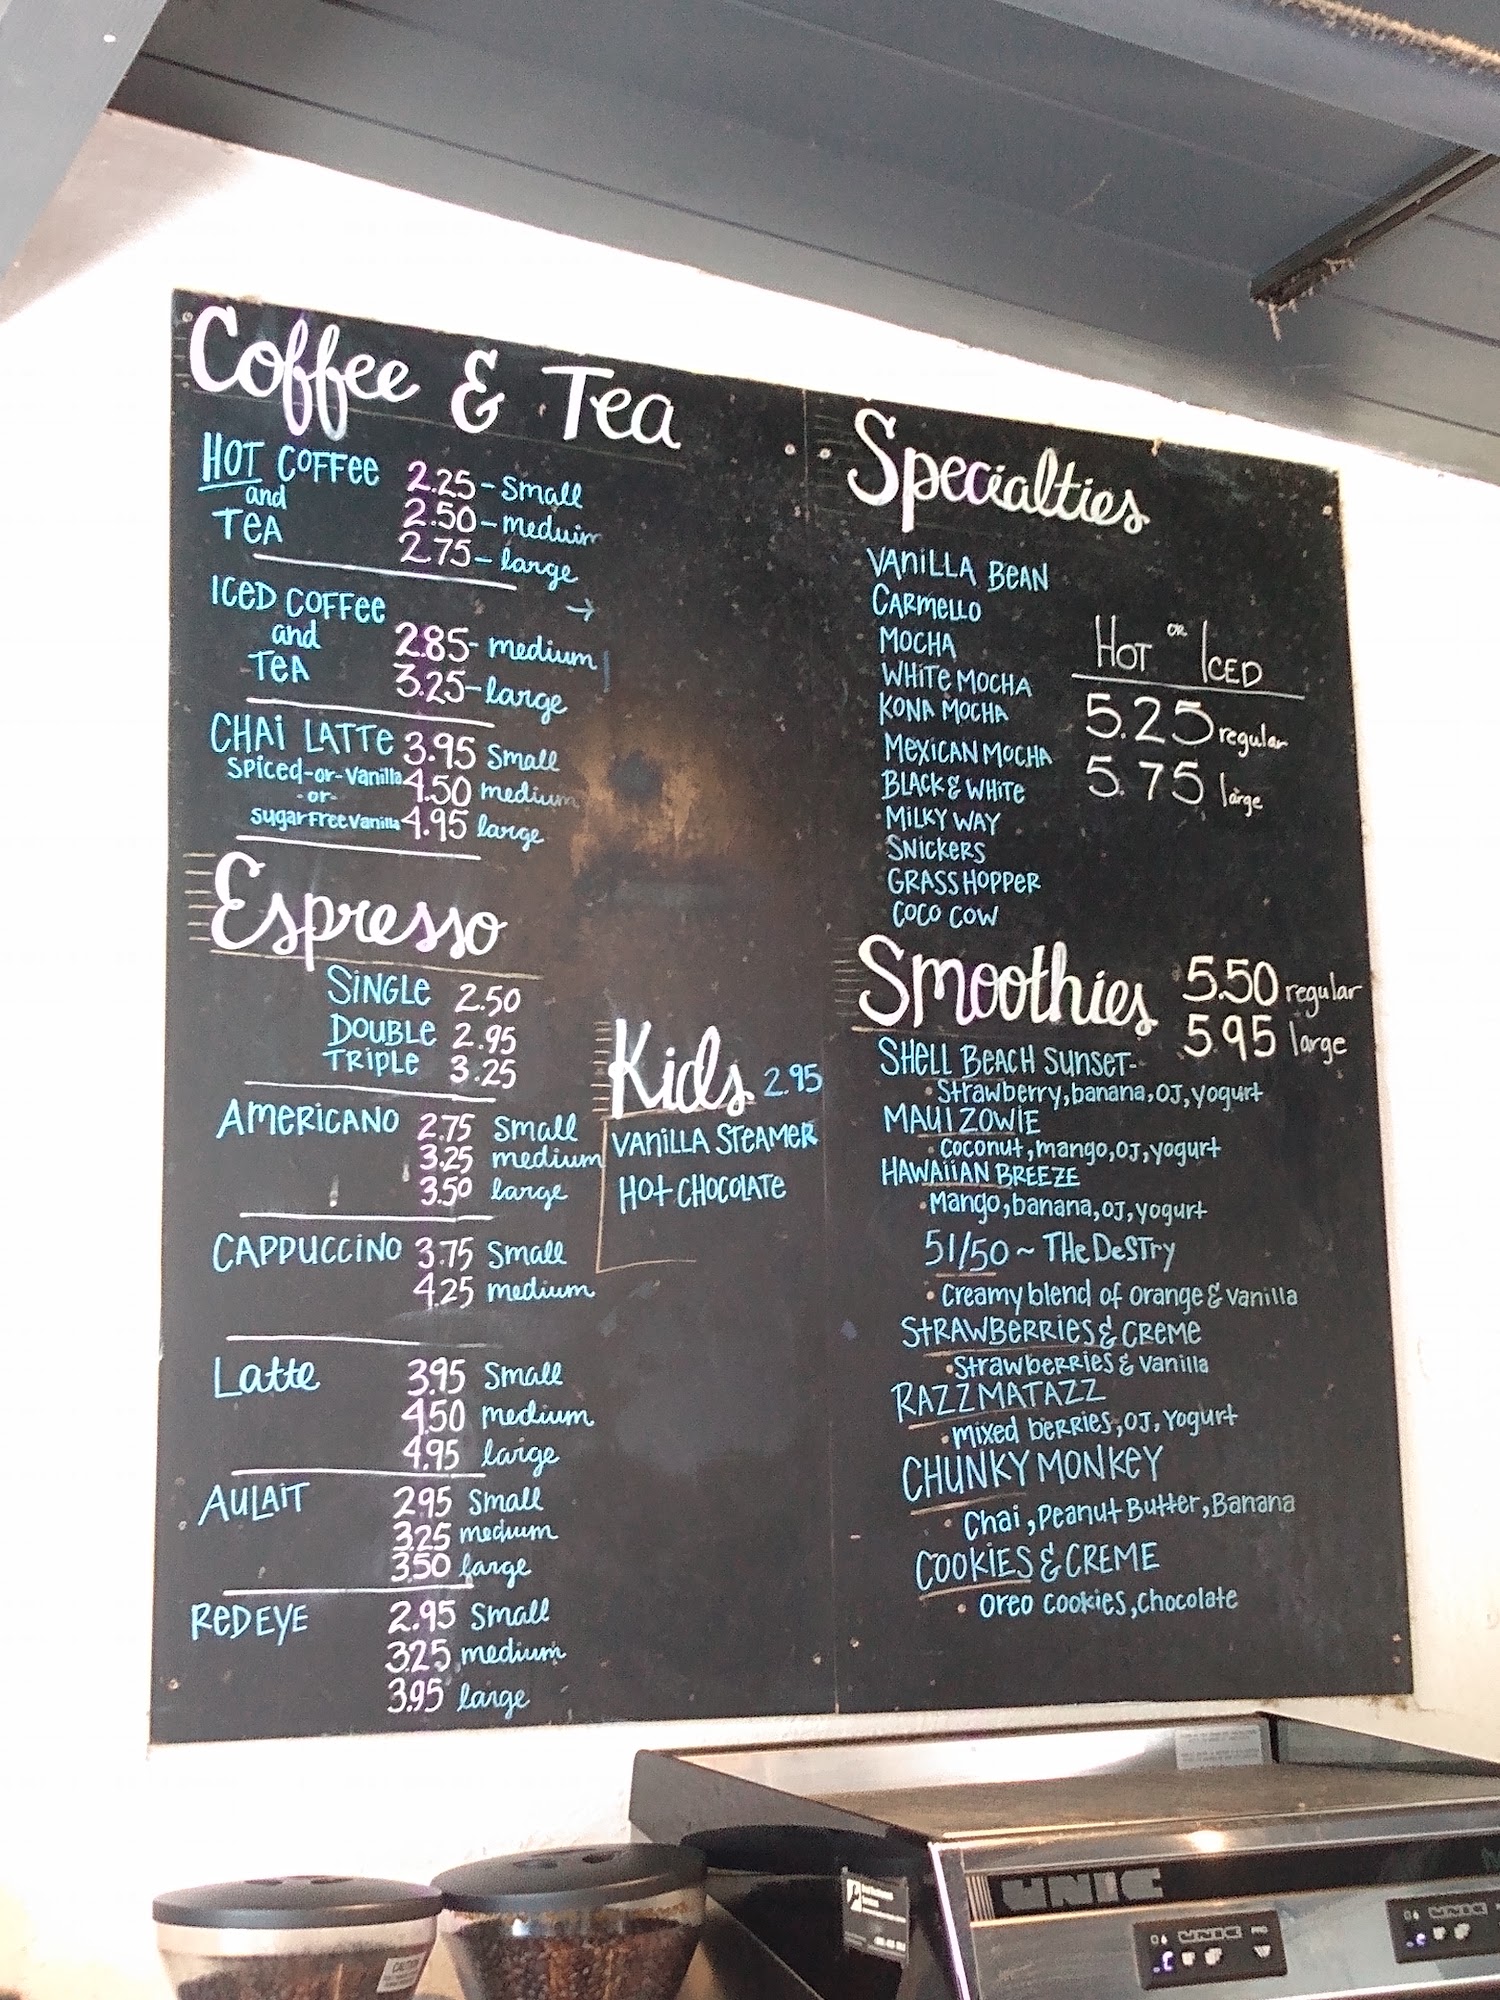 Coffee & Tea
HOT COFFee 2.25-Small
and
TeA 2.50-meduim
2.75-large
→
ICeD COFFee
and
TeA 2.85-medium
3.25-large
CHAi LATTe 3.95 Small
Spiced-or-Vanilla 4.50 medium
-or-
SugarFreeVanilla 4.95 large
Espresso
SiNGLe 2.50
DOUBLe 2.95
TRiPLe 3.25
AmeRiCANO 2.75 Small
3.25 medium
3.50 large
CAPPUCCiNO 3.75 Small
4.25 medium
Latte 3.95 Small
4.50 medium
4.95 large
AuLAiT 2.95 Small
3.25 medium
3.50 large
ReD EYe 2.95 Small
3.25 medium
3.95 large
Kids 2.95
VANiLLA STeAMeR
HOt CHOCOLATe
Specialties
VANiLLA BeAN
CARmeLLO
MOCHA
WHiTe MOCHA
KONA MOCHA
MexiCAN MOCHA
BLACK & WHiTe
MiLKY WAY
SNiCKeRS
GRASSHOPPeR
COCO COW
HOT OR ICED
5.25 regular
5.75 large
Smoothies 5.50 regular
5.95 large
SHeLL BeACH SunSeT-
• Strawberry, banana, OJ, yogurt
MAUI ZOWIE
• Coconut, mango, OJ, yogurt
HAWAiiAN BREEZE
• Mango, banana, OJ, yogurt
51/50 ~ THe DeSTry
• Creamy blend of orange & vanilla
STRAWBeRRieS & CReMe
• Strawberries & vanilla
RAZZMATAZZ
• mixed berries, OJ, Yogurt
CHUNKY MONKeY
• Chai, Peanut Butter, Banana
COOKiES & CREME
• Oreo cookies, chocolate
UNIC
CAUTION
UNIC PRO
UNIC